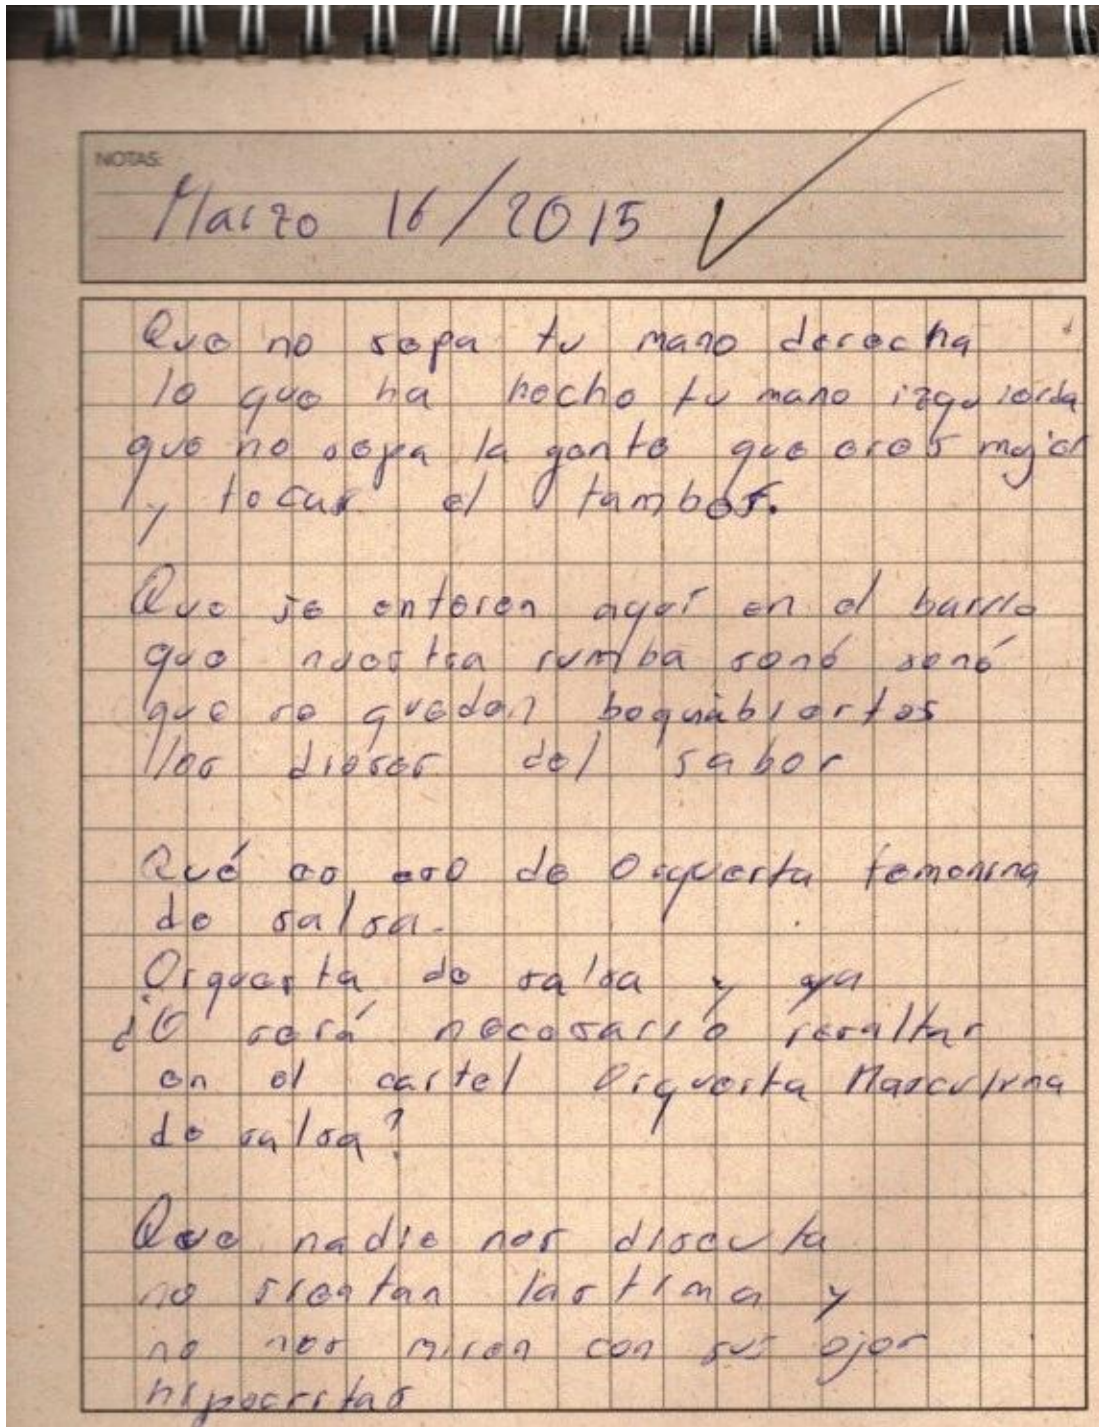 NOTAS:
Marzo 16/2015
Que no sepa tu mano derecha
lo que ha hecho tu mano izquierda
que no sepa la gente que eres mujer
y tocas el tambor.
Que se enteren aquí en el barrio
que nuestra rumba sonó sonó
que se queden boquiabiertos
los dioses del sabor
Qué es eso de Orquesta femenina
de salsa.
Orquesta de salsa y ya
¿O será necesario resaltar
en el cartel Orquesta Masculina
de salsa?
Que nadie nos discuta
no sientan lástima y
no nos miren con sus ojos
hipocritas